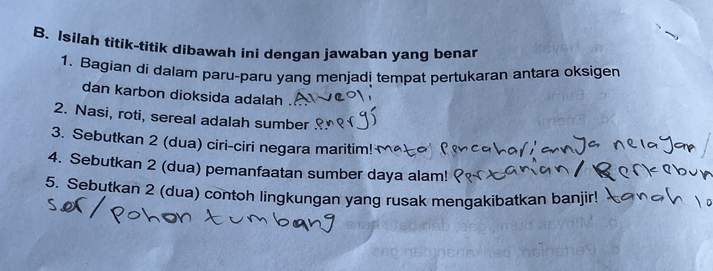 B. Isilah titik-titik dibawah ini dengan jawaban yang benar
1. Bagian di dalam paru-paru yang menjadi tempat pertukaran antara oksigen
dan karbon dioksida adalah ... Alveoli
2. Nasi, roti, sereal adalah sumber energi
3. Sebutkan 2 (dua) ciri-ciri negara maritim! mata pencahariannya nelayan /
4. Sebutkan 2 (dua) pemanfaatan sumber daya alam! Pertanian / Perkebun
5. Sebutkan 2 (dua) contoh lingkungan yang rusak mengakibatkan banjir! tanah lo
ser / pohon tumbang